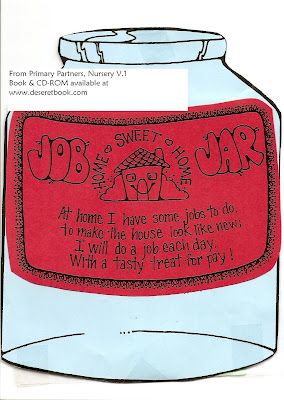 From Primary Partners, Nursery V.1
Book & CD-ROM available at
www.deseretbook.com
JOB JAR
HOME SWEET HOME
At home I have some jobs to do,
to make the house look like new;
I will do a job each day.
With a tasty treat for pay!